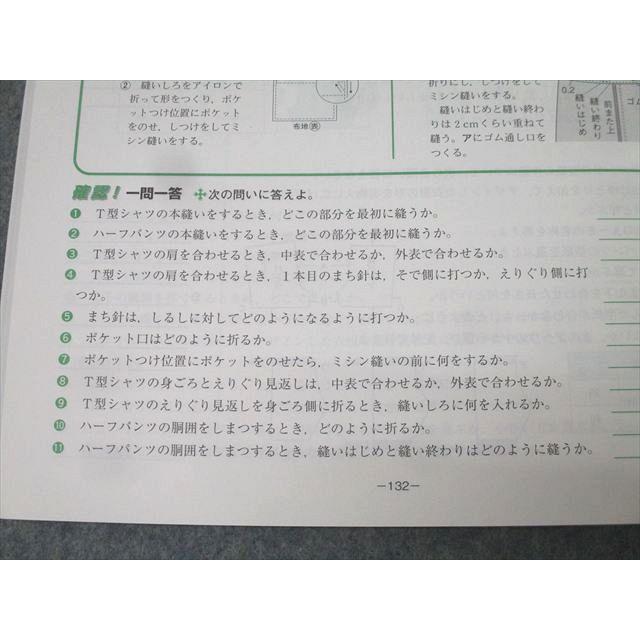 ② 縫いしろをアイロンで
折って形をつくり，ポケ
ットつけ位置にポケット
をのせ，しつけをしてミ
シン縫いをする。
布地表
折りにし，しつけをして
ミシン縫いをする。
縫いはじめと縫い終わ
りは2cmくらい重ねて
縫う。アにゴム通し口を
つくる。
0.2
縫いはじめ
縫い終わり
前また上
ゴム
確認！ 一問一答 次の問いに答えよ。
❶ T型シャツの本縫いをするとき，どこの部分を最初に縫うか。
❷ ハーフパンツの本縫いをするとき，どこの部分を最初に縫うか。
❸ T型シャツの肩を合わせるとき，中表で合わせるか，外表で合わせるか。
❹ T型シャツの肩を合わせるとき，1本目のまち針は，そで側に打つか，えりぐり側に打
つか。
❺ まち針は，しるしに対してどのようになるように打つか。
❻ ポケット口はどのように折るか。
❼ ポケットつけ位置にポケットをのせたら，ミシン縫いの前に何をするか。
❽ T型シャツの身ごろとえりぐり見返しは，中表で合わせるか，外表で合わせるか。
❾ T型シャツのえりぐり見返しを身ごろ側に折るとき，縫いしろに何を入れるか。
❿ ハーフパンツの胴囲をしまつするとき，どのように折るか。
⓫ ハーフパンツの胴囲をしまつするとき，縫いはじめと縫い終わりはどのように縫うか。
－132－